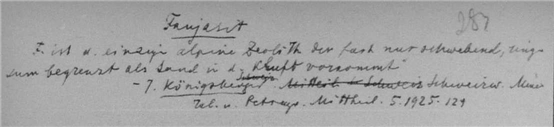 Faujasit
287
F. ist d. einzige alpine Zeolith der fast nur schwebend, rings-
um begrenzt als Sand in d. Kluft vorkommt"
- J. Königsberger. Schweiz. Mineral. u. Petrogr. Mittheil. 5. 1925. 129